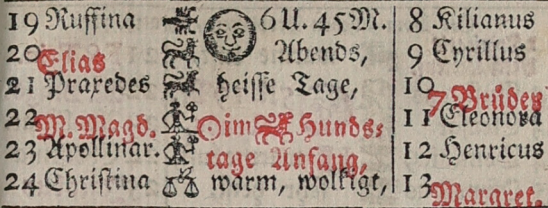 19 Ruffina 6 U. 45 M. 8 Kilianus
20 Elias Abends, 9 Cyrillus
21 Praxedes heisse Tage, 10 7. Brüder
22 M. Magd. ☉ im Hunds- 11 Eleonora
23 Apollinar. tage Anfang, 12 Henricus
24 Christina warm, wolkigt, 13 Margret.